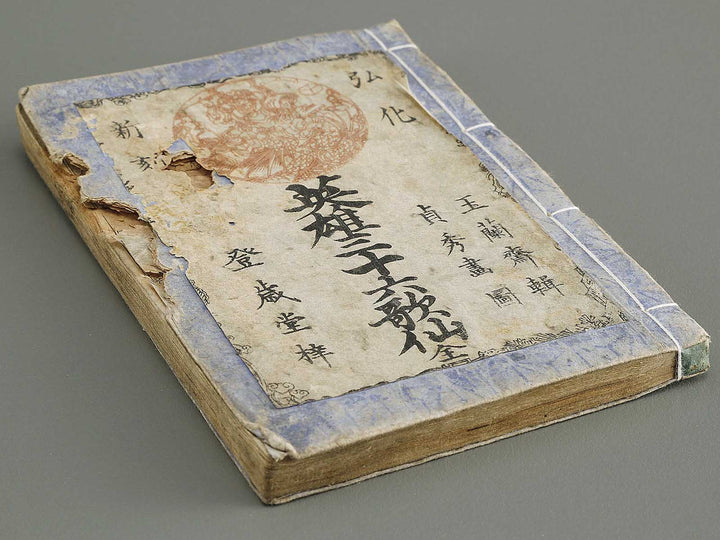 弘化
新刻
玉蘭齋輯
貞秀畫圖
英雄三十六歌仙
全
登歳堂梓